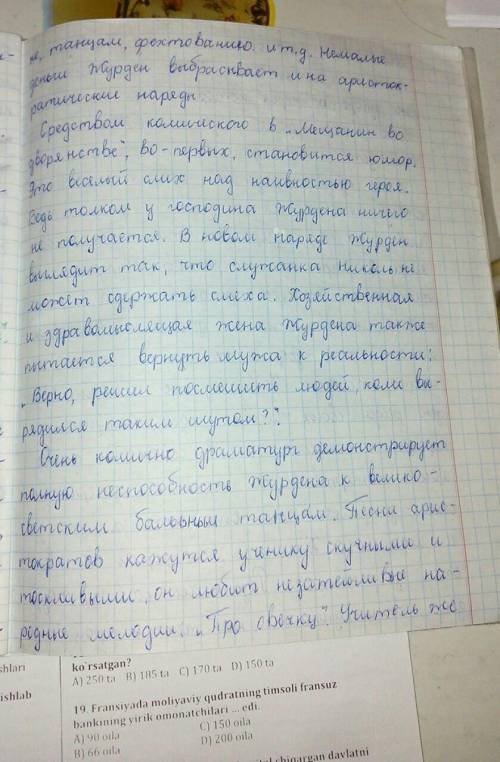 не, танцам, фехтованию и т.д. Немалые
деньги Журден выбрасывает и на аристок-
ратические наряды
Средством комического в „Мещанин во
дворянстве", во-первых, становится юмор.
Это весёлый смех над наивностью героя.
Ведь толком у господина Журдена ничего
не получается. В новом наряде Журден
выглядит так, что служанка Николь не
может сдержать смеха. Хозяйственная
и здравомыслящая жена Журдена также
пытается вернуть мужа к реальности:
„Верно, решил посмешить людей, коли вы-
рядился таким шутом?".
Очень комично драматург демонстрирует
полную неспособность Журдена к велико-
светским бальным танцам. Песни арис-
тократов кажутся ученику скучными и
тоскливыми, он любит незатейливые на-
родные мелодии „Про овечку". Учитель же
ishlari
ishlab
ko'rsatgan?
A) 250 ta B) 185 ta C) 170 ta D) 150 ta
19. Fransiyada moliyaviy qudratning timsoli fransuz
bankining yirik omonatchilari ... edi.
A) 90 oila C) 150 oila
B) 66 oila D) 200 oila
chiqargan davlatni